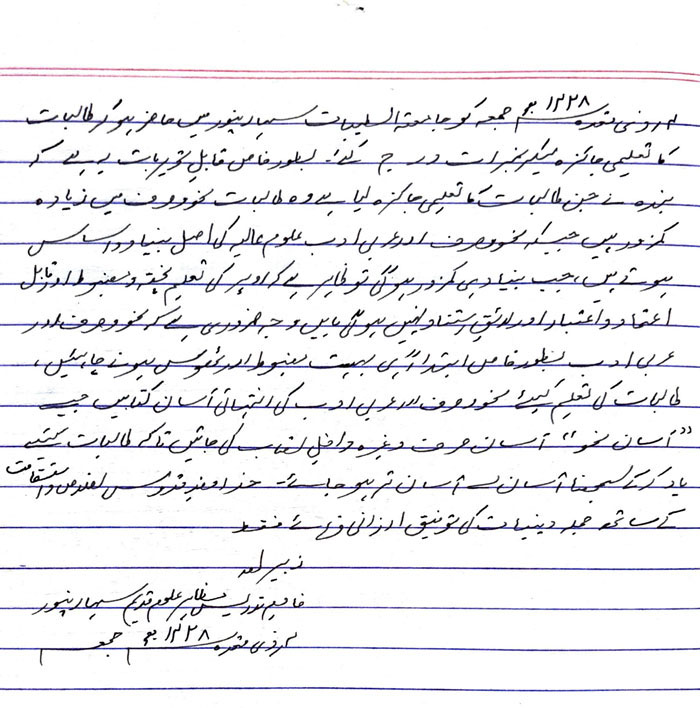 ۲؍ ذی قعدہ ۱۴۲۸ھ یوم جمعہ کو جامعۃ الطیبات سہارنپور میں حاضر ہوکر طالبات
کا تعلیمی جائزہ لیکر نمبرات درج کئے، بطور خاص قابل تحریر بات یہ ہے کہ
بندہ نے جن طالبات کا تعلیمی جائزہ لیا ہے وہ طالبات نحو و صرف میں زیادہ
کمزور ہیں جب کہ نحو و صرف اور عربی ادب علوم عالیہ کی اصل بنیاد و اساس
ہوتے ہیں، جب بنیاد ہی کمزور ہوگی تو ظاہر ہے کہ اوپر کی تعلیم پختہ و مضبوط اور قابل
اعتماد و اعتبار اور لائق استناد نہیں ہوگی بایں وجہ ضروری ہے کہ نحو و صرف اور
عربی ادب بطور خاص ابتداءً ہی بہت مضبوط اور ٹھوس ہونے چاہئیں،
طالبات کی تعلیم کیلئے نحو و صرف اور عربی ادب کی انتہائی آسان کتابیں جیسے
"آسان نحو" آسان صرف وغیرہ داخل نصاب کی جائیں تاکہ طالبات کیلئے
یاد کرکے سمجھنا آسان سے آسان تر ہو جائے۔ خداوند قدوس اخلاص و استقامت
کے ساتھ جملہ دینیات کی توفیق ارزانی فرمائے فقط
زبیر احمد
خادم تدریس مظاہر علوم قدیم سہارنپور
۲؍ ذی قعدہ ۱۴۲۸ھ یوم جمعہ